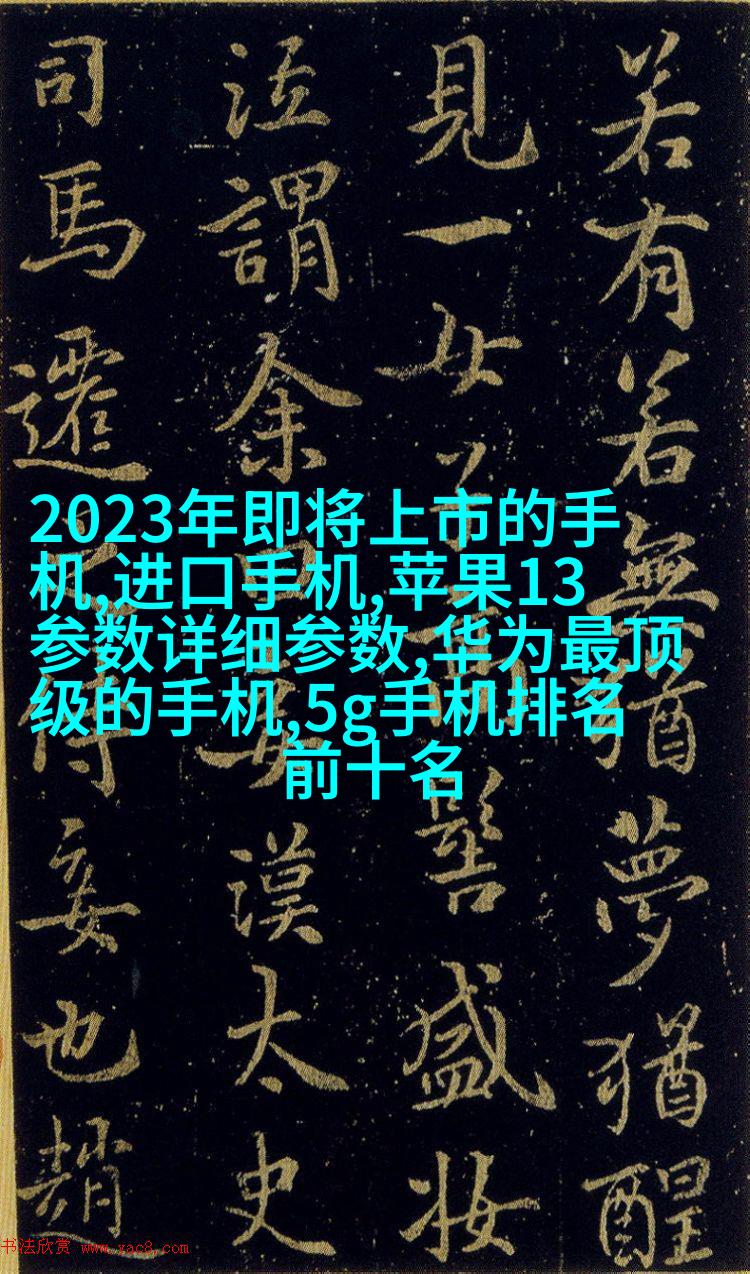 若有若無猶夢猶醒
見一女子髻盛妝
泣謂余曰妾漢太史
司馬遷之侍妾也趙
2023年即将上市的手
机,进口手机,苹果13
参数详细参数,华为最顶
级的手机,5g手机排名
前十名
书法欣赏 www.yac8.com